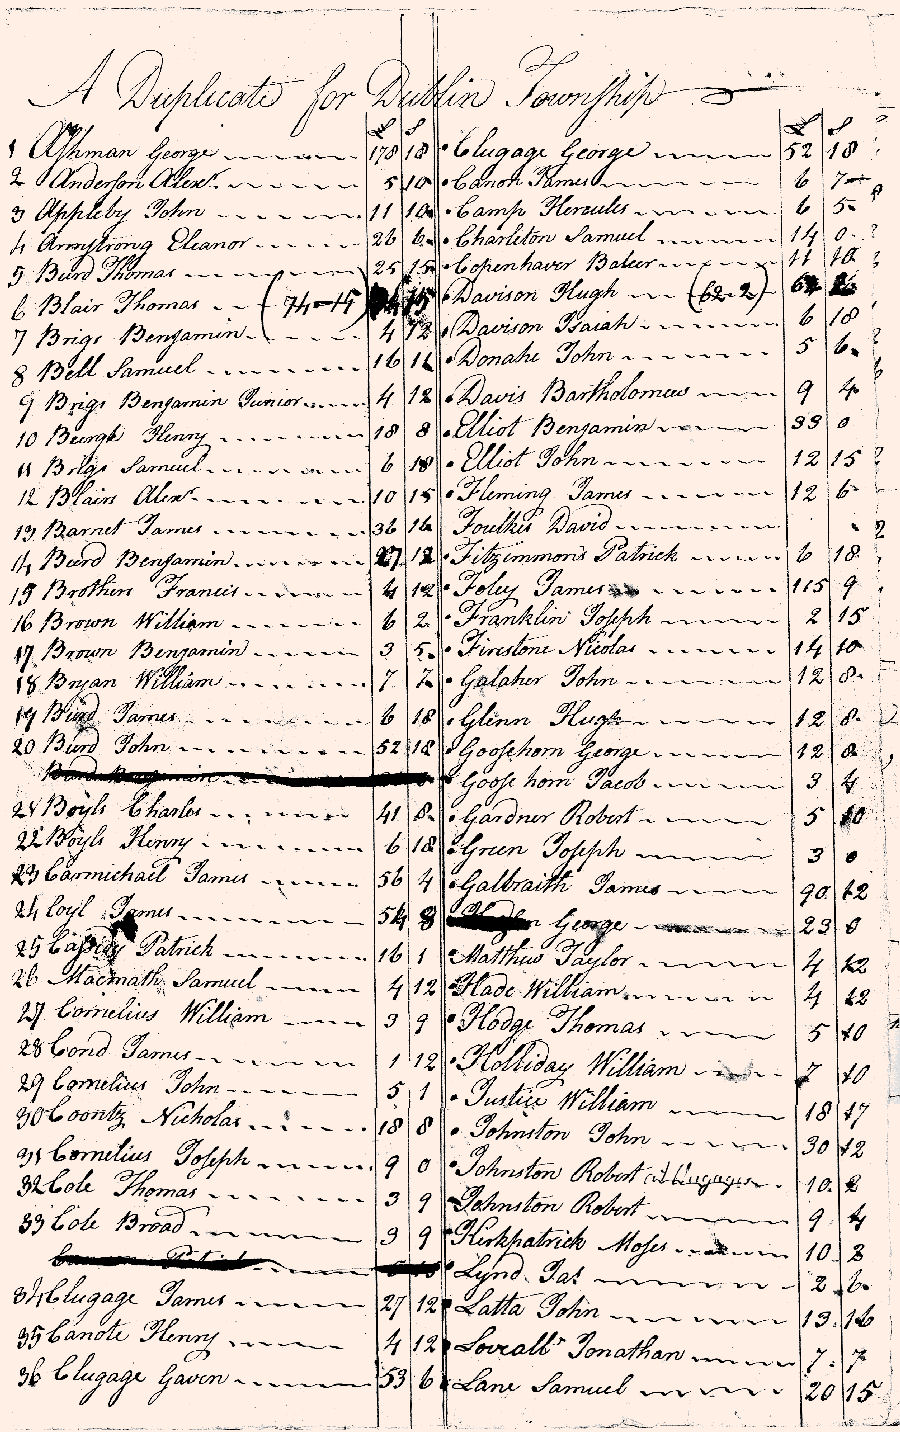 A Duplicate for Dublin Township
£ S
1 Ashman George 178 18
2 Anderson Alexr. 5 10
3 Appleby John 11 10
4 Armstrong Eleanor 26 6
5 Burd Thomas 25 15
6 Blair Thomas (74-15) 15
7 Brigs Benjamin 4 12
8 Bell Samuel 16 16
9 Brigs Benjamin Junior 4 12
10 Beergh Henry 18 8
11 Brigs Samuel 6 18
12 Blairs Alexr 10 15
13 Barnet James 36 16
14 Burd Benjamin 27 12
15 Brothers Francis 4 12
16 Brown William 6 2
17 Brown Benjamin 3 5
18 Bryan William 7 7
19 Burd James 6 18
20 Burd John 52 18
21 Boyls Charles 41 8
22 Boyls Henry 6 18
23 Carmichael James 56 4
24 Coyl James 54 8
25 Cassidy Patrick 16 1
26 Macmath Samuel 4 12
27 Cornelius William 3 9
28 Cond James 1 12
29 Cornelius John 5 1
30 Coontz Nicholas 18 8
31 Cornelius Joseph 9 0
32 Cole Thomas 3 9
33 Cole Broad 3 9
34 Clugage James 27 12
35 Canote Henry 4 12
36 Clugage Gaven 53 6
£ S
Clugage George 52 18
Canon James 6 7
Camp Hercules 6 5
Charleton Samuel 14 0
Copenhaver Balser 11 10
Davison Hugh (62-2)
Davison Isaiah 6 18
Donahe John 5 6
Davis Bartholomew 9 4
Elliot Benjamin 33 0
Elliot John 12 15
Fleming James 12 6
Foulkes David
Fitzimmons Patrick 6 18
Foley James 115 9
Franklin Joseph 2 15
Firestone Nicolas 14 10
Galaher John 12 8
Glenn Hugh 12 8
Goosehorn George 12 8
Goosehorn Jacob 3 4
Gardner Robert 5 10
Green Joseph 3 0
Galbraith James 90 12
George 23 0
Matthew Taylor 4 12
Hade William 4 12
Hodge Thomas 5 10
Holliday William 7 10
Justice William 18 17
Johnston John 30 12
Johnston Robert at Clugages 10 2
Johnston Robert 9 4
Kirkpatrick Moses 10 2
Lynd Jas 2 6
Latta John 13 16
Loveall Jonathan 7 7
Lane Samuel 20 15